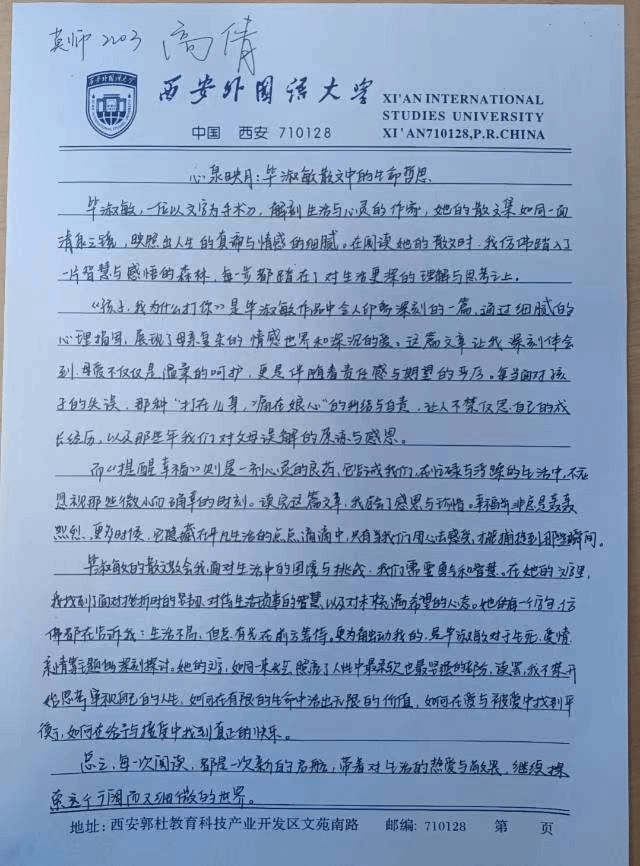 英师2203 高倩
西安外国语大学
XI'AN INTERNATIONAL
STUDIES UNIVERSITY
中国 西安 710128
XI'AN710128,P.R.CHINA
心泉映月：毕淑敏散文中的生命哲思
毕淑敏，一位以文字为手术刀，解剖生活与心灵的作家，她的散文集如同一面
清泉，映照出人生的真谛与情感的细腻。在阅读她的散文时，我仿佛踏入了
一片智慧与感悟的森林，每一步都踏在了对生活更深的理解与思考之上。
《孩子，我为什么打你》是毕淑敏作品中令人印象深刻的一篇，通过细腻的
心理描写，展现了母亲复杂的情感世界和深沉的爱。这篇文章让我深刻体会
到，母爱不仅仅是温柔的呵护，更是伴随着责任感与期望的严厉。每当面对孩
子的失误，那种“打在儿身，痛在娘心”的纠结与自责，让人不禁反思自己的成
长经历，以及那些年我们对父母误解的原谅与感恩。
而《提醒幸福》则是一剂心灵的良药，它告诫我们，在忙碌与浮躁的生活中，不应
忽视那些微小而确幸的时刻。读完这篇文章，我学会了感恩与珍惜。幸福并非总是轰轰
烈烈，更多时候，它隐藏在平凡生活的点点滴滴中，只有当我们用心去感受，才能捕捉到那些瞬间。
毕淑敏的散文教会我，面对生活中的困境与挑战，我们需要勇气和智慧。在她的文字里，
我找到了面对挫折时的坚韧，对待生活琐事的智慧，以及对未来充满希望的心态。她的每一个字句，仿
佛都在告诉我：生活不易，但总有光在前方等待。更为触动我的，是毕淑敏对于生死、爱情、
亲情等主题的深刻探讨。她的文字，如同一束光，照亮了人性中最柔软也最坚强的部分，读罢，我不禁开
始思考审视自己的人生，如何在有限的生命中活出无限的价值，如何在爱与被爱中找到平
衡，如何在给予与接受中找到真正的快乐。
总之，每一次阅读，都是一次新的启航，带着对生活的热爱与敬畏，继续探
索这个广阔而又细微的世界。
地址：西安郭杜教育科技产业开发区文苑南路 邮编：710128 第 页